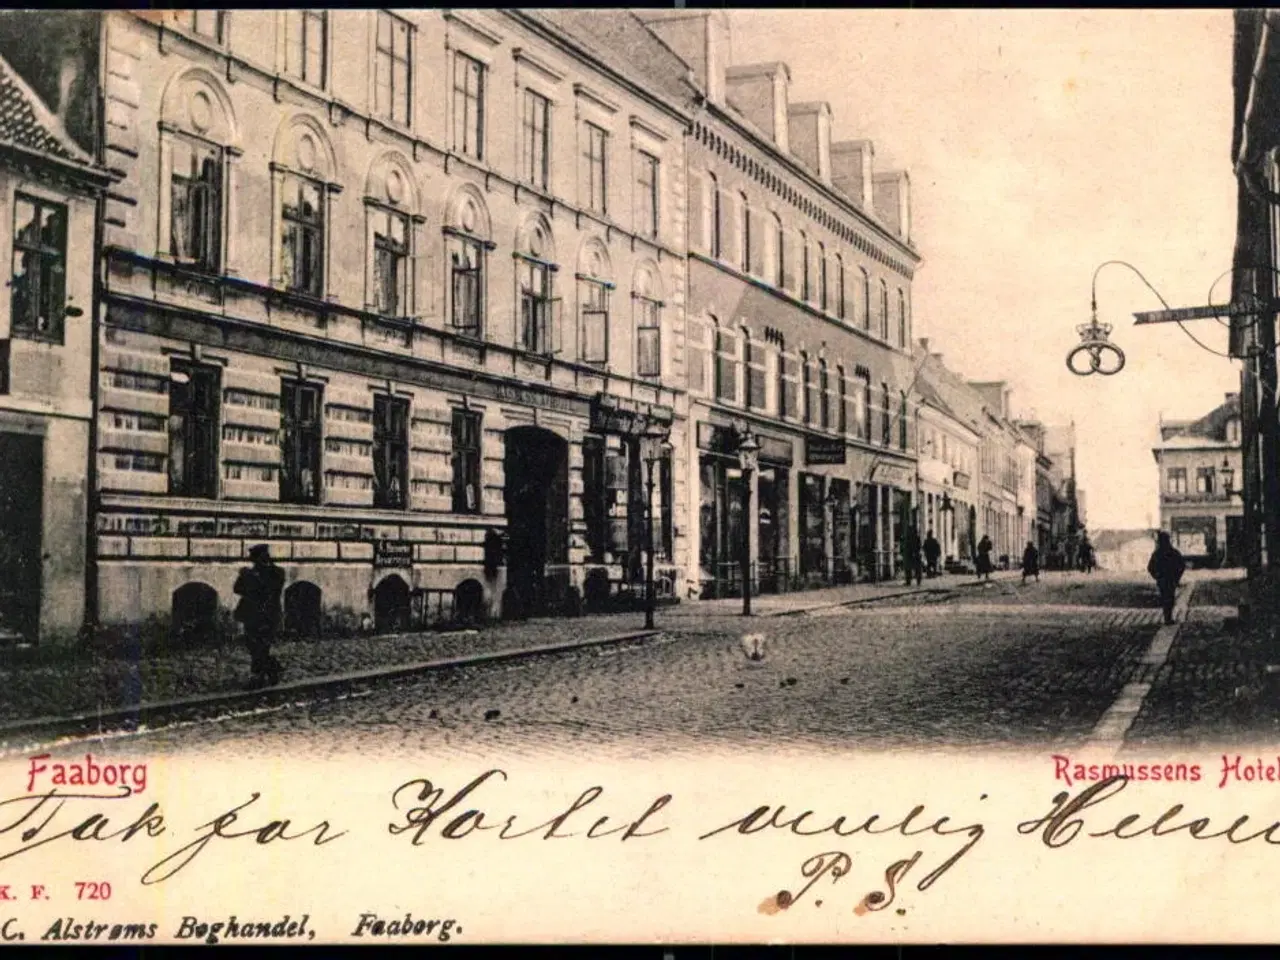 Faaborg
Rasmussens Hotel
Tak for Kortet venlig Hilsen
P. S.
K. F. 720
C. Alstrøms Boghandel, Faaborg.